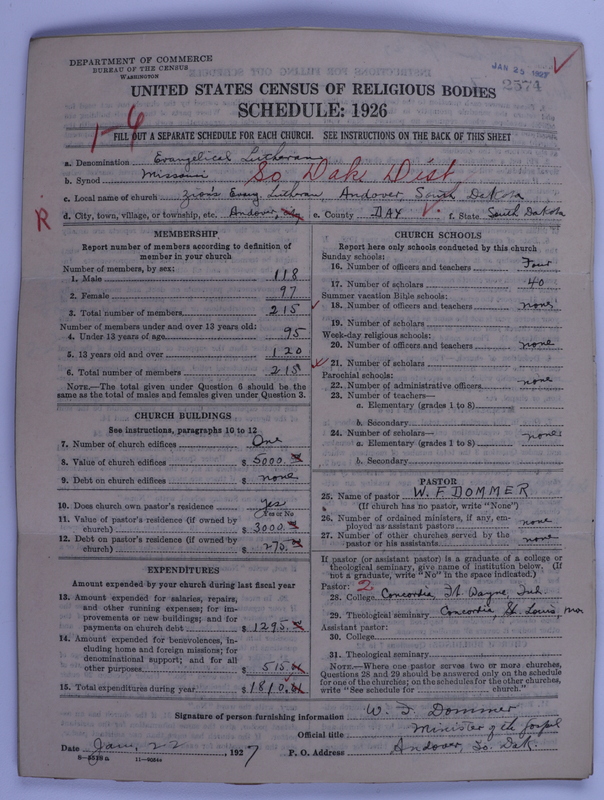 DEPARTMENT OF COMMERCE
BUREAU OF THE CENSUS
WASHINGTON
JAN 25 1927
2574
UNITED STATES CENSUS OF RELIGIOUS BODIES
SCHEDULE: 1926
1-6
FILL OUT A SEPARATE SCHEDULE FOR EACH CHURCH. SEE INSTRUCTIONS ON THE BACK OF THIS SHEET
a. Denomination Evangelical Lutheran
b. Synod Missouri So Dak Dist
c. Local name of church Zion's Evang Lutheran, Andover, South Dakota
d. City, town, village, or township, etc. Andover, e. County DAY f. State South Dakota
R
MEMBERSHIP
Report number of members according to definition of
member in your church
Number of members, by sex:
1. Male 118
2. Female 97
3. Total number of members 215
Number of members under and over 13 years old:
4. Under 13 years of age 95
5. 13 years old and over 120
6. Total number of members 215
NOTE.—The total given under Question 6 should be the
same as the total of males and females given under Question 3.
CHURCH BUILDINGS
See instructions, paragraphs 10 to 12
7. Number of church edifices One
8. Value of church edifices $ 5000.
9. Debt on church edifices $ none
10. Does church own pastor's residence yes
Yes or No
11. Value of pastor's residence (if owned by
church) $ 3000.
12. Debt on pastor's residence (if owned by
church) $ 275.
EXPENDITURES
Amount expended by your church during last fiscal year
13. Amount expended for salaries, repairs,
and other running expenses; for im-
provements or new buildings; and for
payments on church debt $ 1295.
14. Amount expended for benevolences, in-
cluding home and foreign missions; for
denominational support; and for all
other purposes $ 515
15. Total expenditures during year $ 1810.
CHURCH SCHOOLS
Report here only schools conducted by this church
Sunday schools:
16. Number of officers and teachers Four
17. Number of scholars 40
Summer vacation Bible schools:
18. Number of officers and teachers none
19. Number of scholars
Week-day religious schools:
20. Number of officers and teachers none
21. Number of scholars
Parochial schools:
22. Number of administrative officers none
23. Number of teachers—
a. Elementary (grades 1 to 8)
b. Secondary
24. Number of scholars— none
a. Elementary (grades 1 to 8)
b. Secondary
PASTOR
25. Name of pastor W. F. DOMMER
(If church has no pastor, write "None")
26. Number of ordained ministers, if any, em-
ployed as assistant pastors none
27. Number of other churches served by the
pastor or his assistants none
If pastor (or assistant pastor) is a graduate of a college or
theological seminary, give name of institution below. (If
not a graduate, write "No" in the space indicated.)
Pastor: 2
28. College Concordia, Ft. Wayne, Ind.
29. Theological seminary Concordia, St. Louis, Mo
Assistant pastor:
30. College
31. Theological seminary
NOTE.—Where one pastor serves two or more churches,
Questions 28 and 29 should be answered only on the schedule
for one of the churches; on the schedules for the other churches,
write "See schedule for church."
Signature of person furnishing information W. F. Dommer
Official title Minister of the Gospel
Date Jan, 22, 1927 P. O. Address Andover, So. Dak.